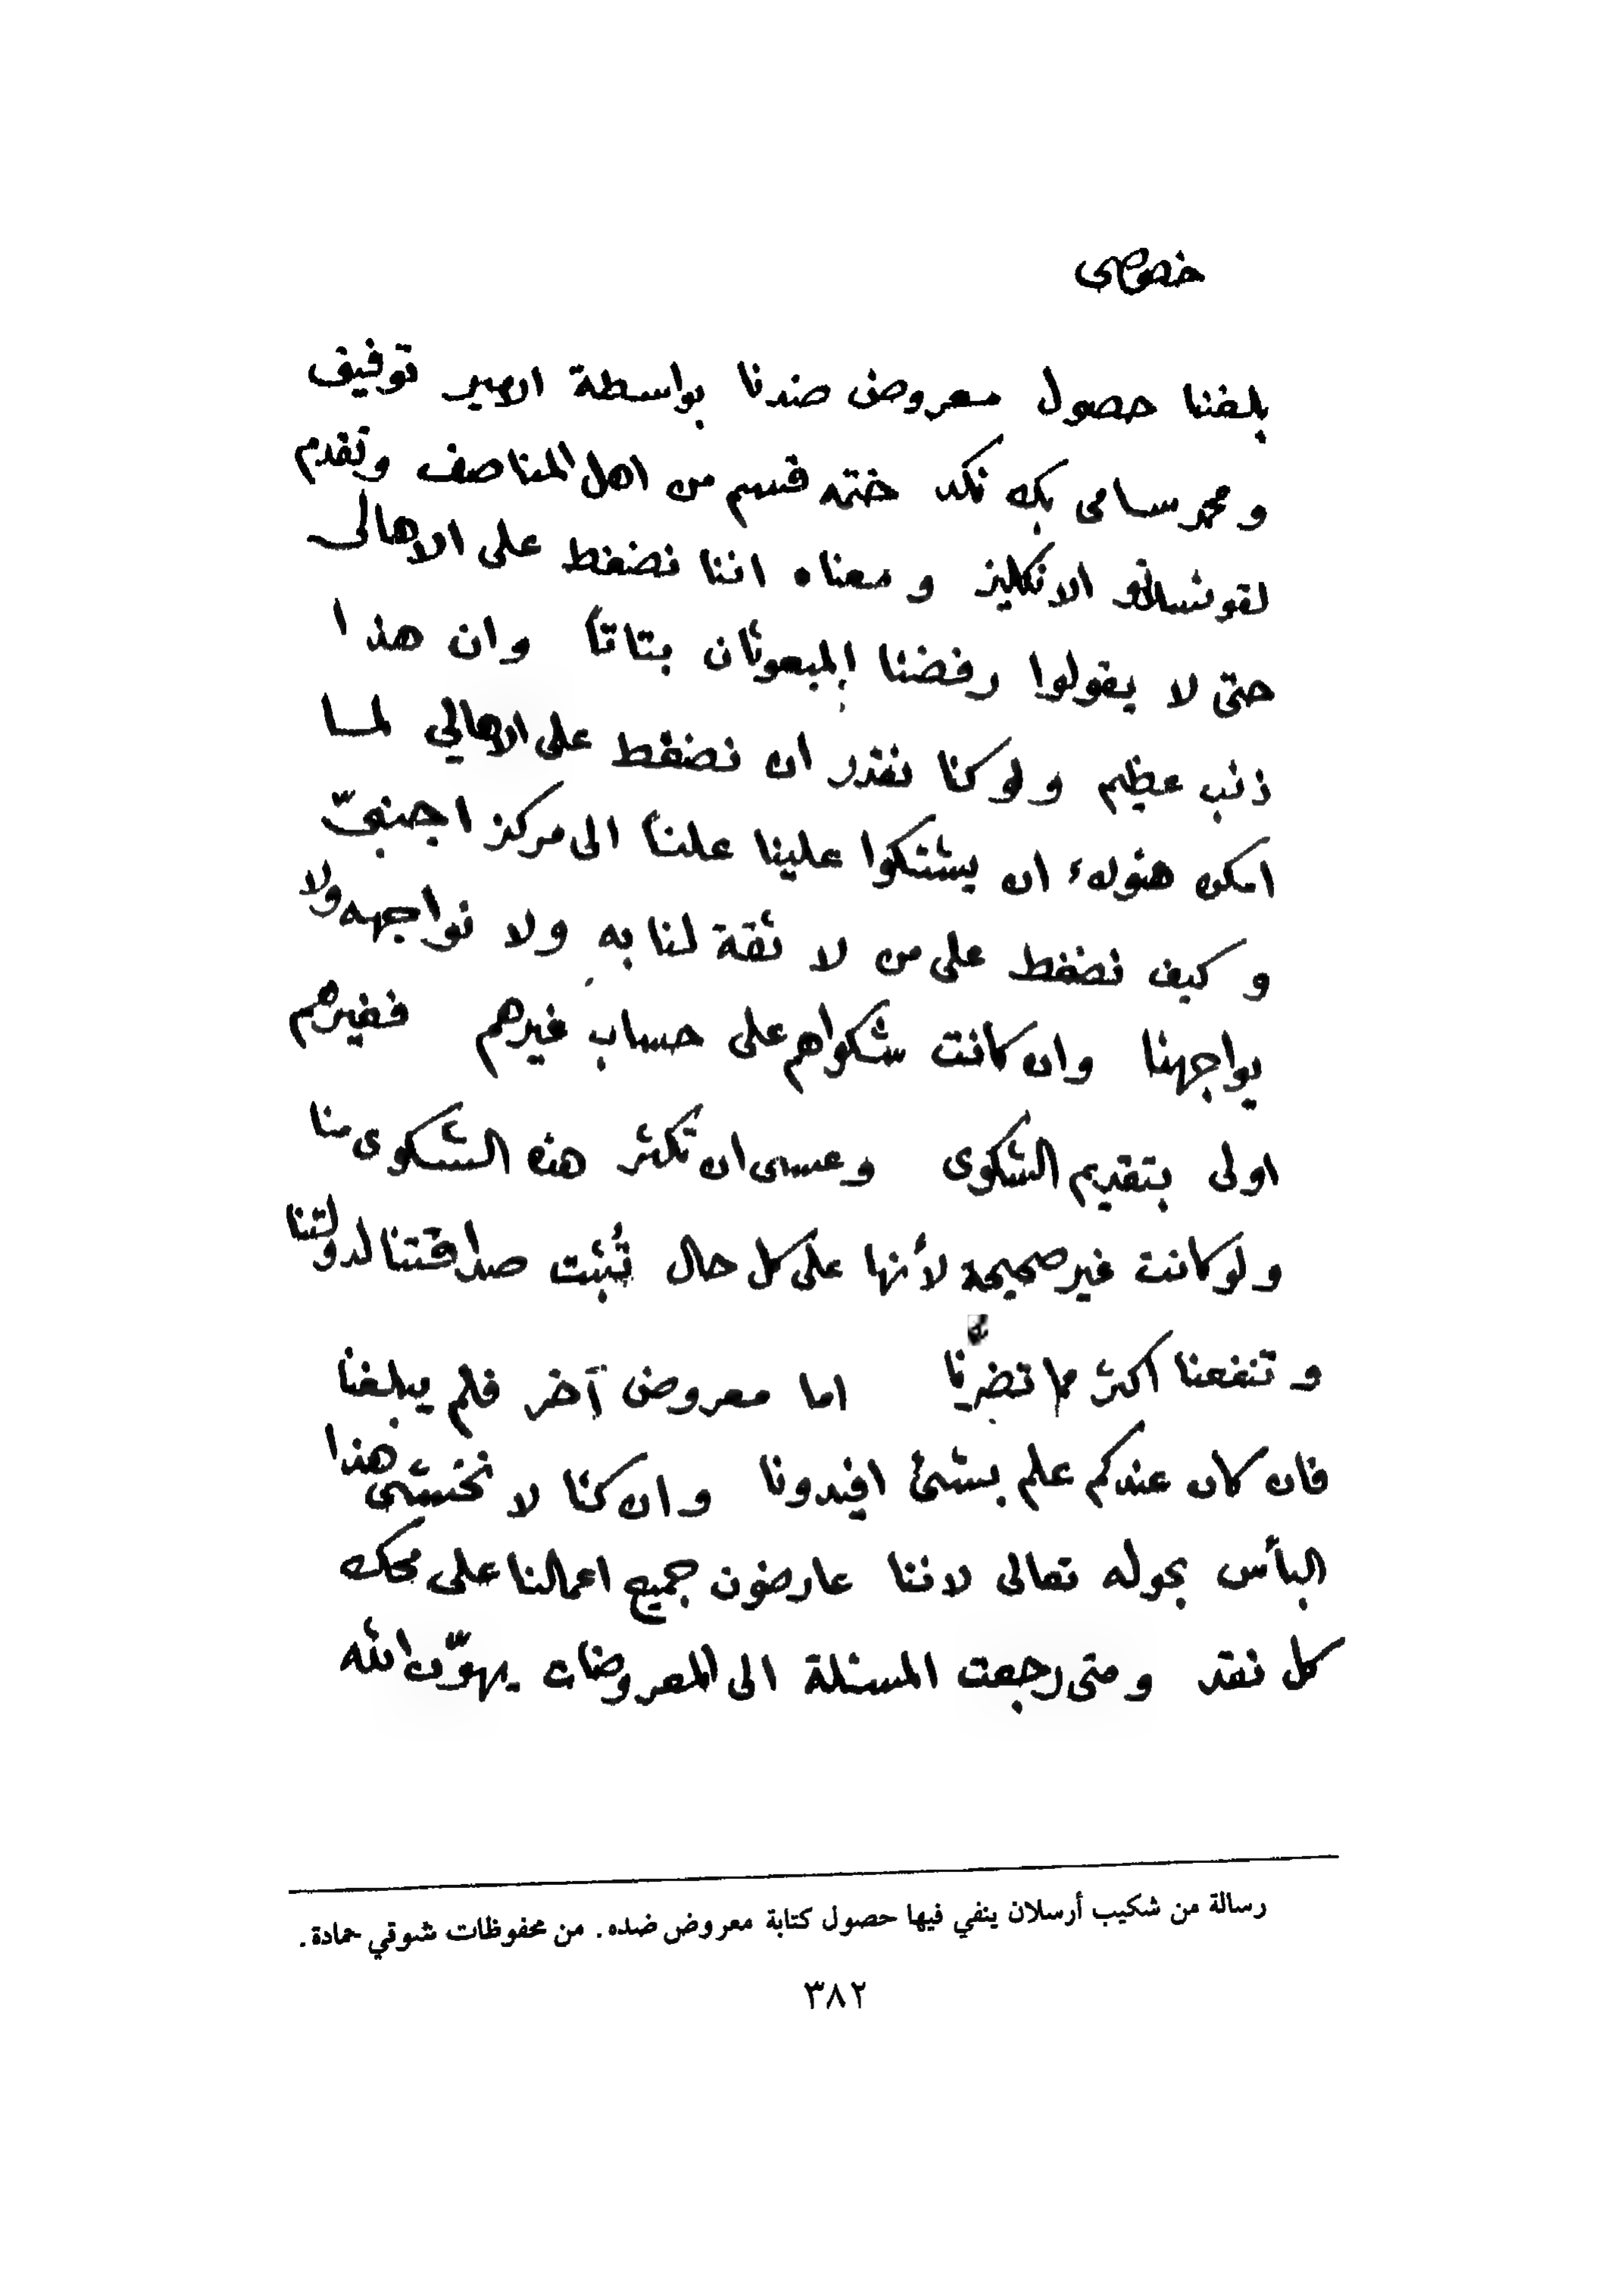 خصوصي
بلغنا حصول معروض ضدنا بواسطة الامير توفيق
ومحمد سامي بك نكد ختمه قسم من اهل المناصف وتقدم
لقونسلاتو الانكليز ومعناه اننا نضغط على الاهالي
حتى لا يقولوا رفضنا المبعوثان بتاتاً وان هذا
ذنب عظيم ولو كنا نقدر ان نضغط على الاهالي لما
امكن هؤلاء ان يشتكوا علينا علناً الى مركز اجنبيّ
وكيف نضغط على من لا ثقة لنا به ولا نواجهه ولا
يواجهنا وان كانت شكواهم على حساب غيرهم فغيرهم
اولى بتقديم الشكوى وعسى ان تكثر هذه الشكوى منا
ولو كانت غير صحيحة لأنها على كل حال تُثبت صداقتنا لدولتنا
وتنفعنا اكثر مما تضرّنا اما معروض آخر فلم يبلغنا
فان كان عندكم علم بشئ افيدونا وان كنّا لا نخشى هذا
البأس بحوله تعالى لاننا عارضون جميع اعمالنا على محك
كل نقد ومتى رجعت المسئلة الى المعروضات يهوّن الله
رسالة من شكيب أرسلان ينفي فيها حصول كتابة معروض ضده. من محفوظات شوقي حمادة.
٣٨٢